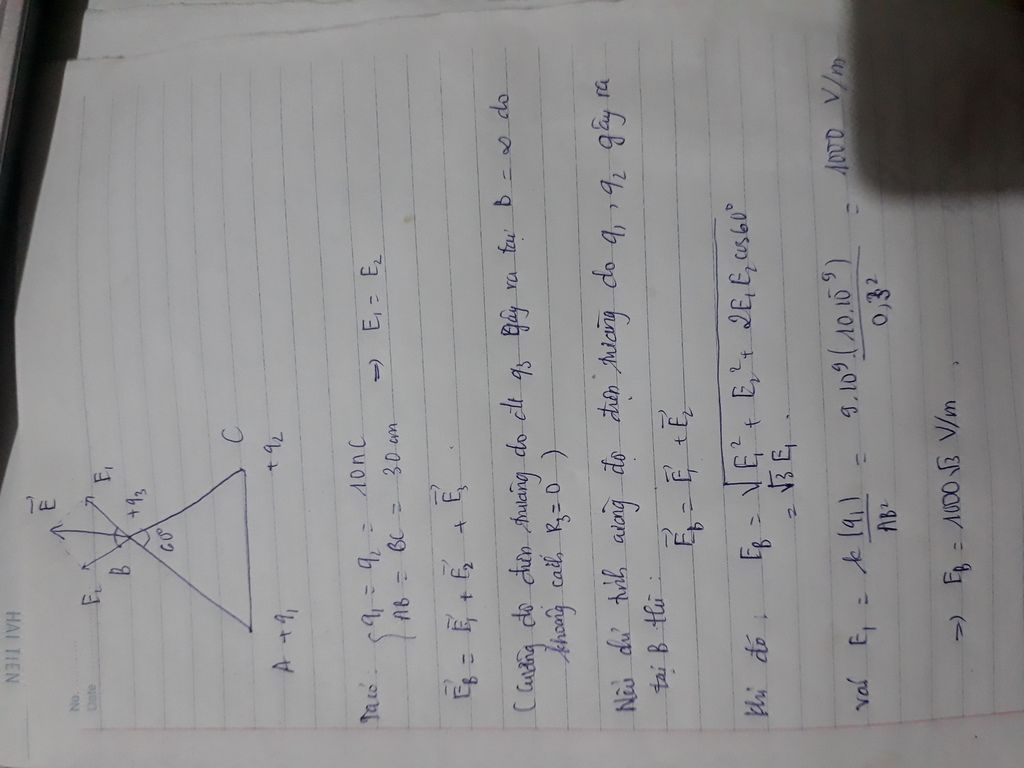 HẢI TIẾN
No.
Date
E⃗
E₂ E₁
B +q₃
60°
C
A +q₁ +q₂
Ta có: { q₁ = q₂ = 10nC
AB = BC = 30 cm ⇒ E₁ = E₂
E⃗_B = E⃗₁ + E⃗₂ + E⃗₃.
(Cường độ điện trường do đt q₃ gây ra tại B = ∞ do
khoảng cách R₃ = 0)
Nếu chỉ tính cường độ điện trường do q₁, q₂ gây ra
tại B thì:
E⃗_B = E⃗₁ + E⃗₂
Khi đó: E_B = √(E₁² + E₂² + 2E₁E₂cos60°)
= √3 E₁.
với E₁ = k|q₁|/AB² = 9.10⁹.(10.10⁻⁹)/0,3² = 1000 V/m
⇒ E_B = 1000√3 V/m.